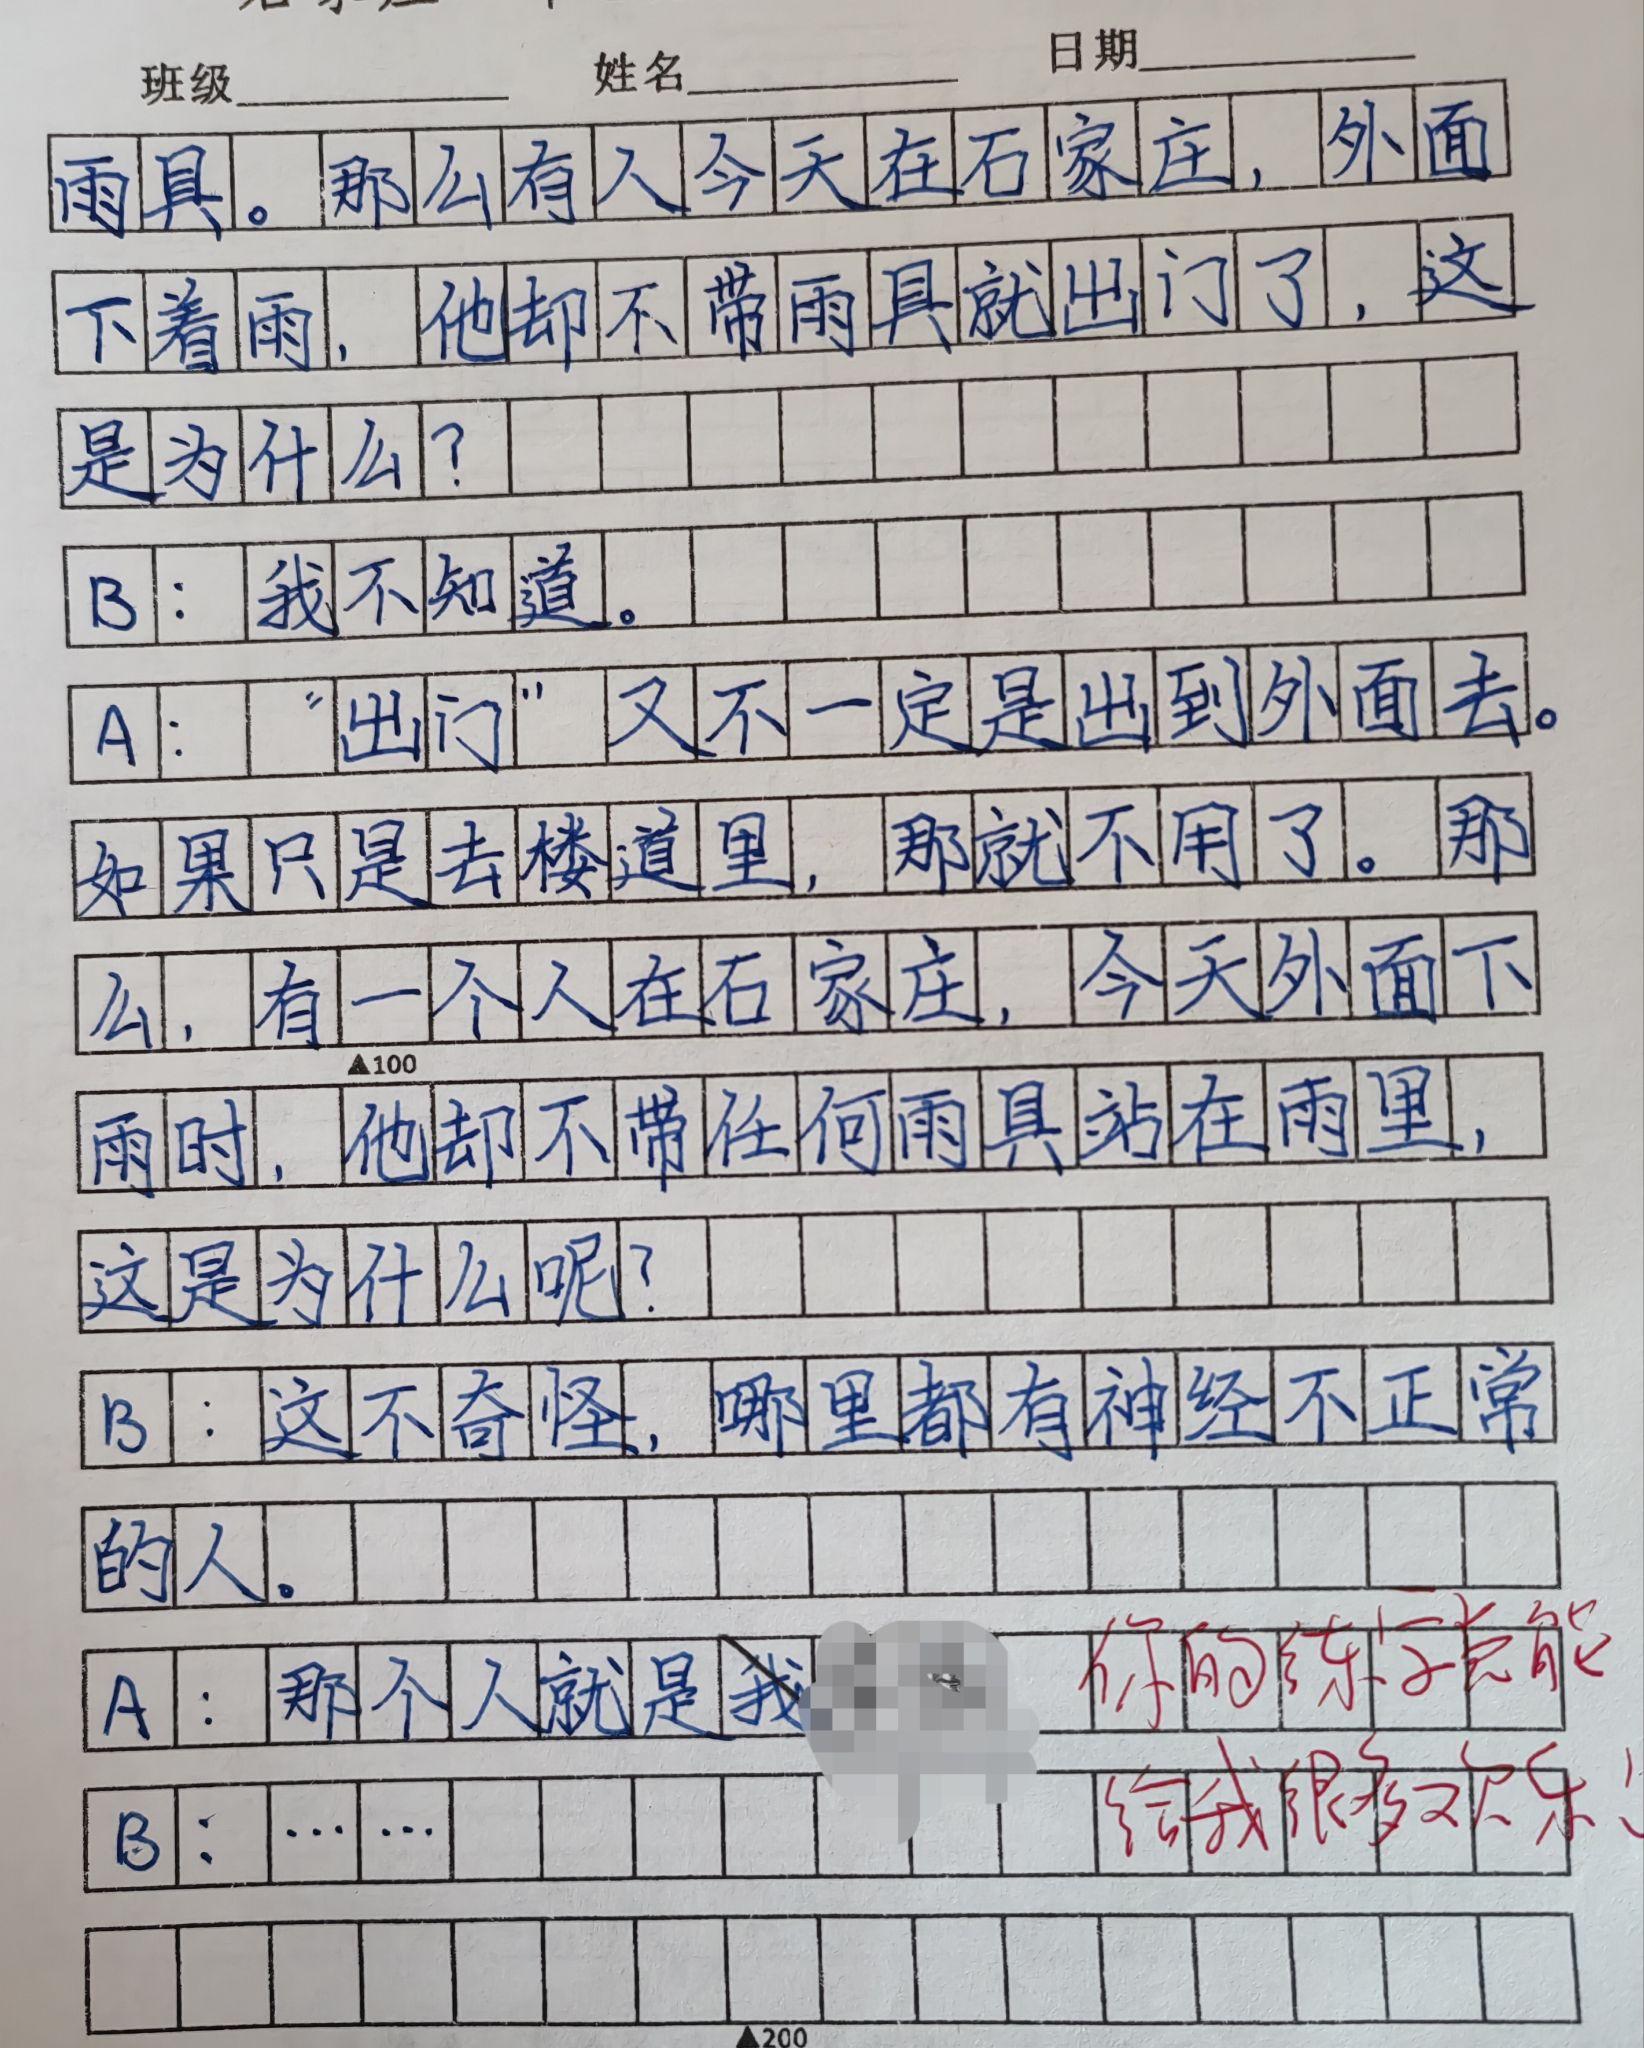 班级 姓名 日期
雨具。那么有人今天在石家庄，外面
下着雨，他却不带雨具就出门了，这
是为什么？
B：我不知道。
A：“出门”又不一定是出到外面去。
如果只是去楼道里，那就不用了。那
么，有一个人在石家庄，今天外面下
▲100
雨时，他却不带任何雨具站在雨里，
这是为什么呢？
B：这不奇怪，哪里都有神经不正常
的人。
A：那个人就是我
你的练字总能
B：……
给我很多欢乐
▲200